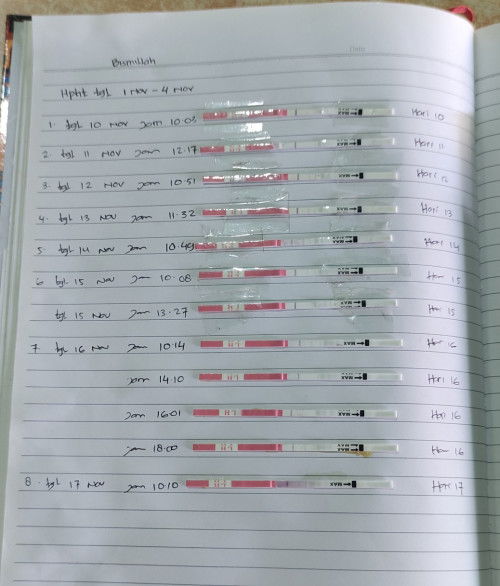 Date
Bismillah
Hpht tgl 1 Nov - 4 Nov
1. tgl 10 Nov Jam 10:03 MAX Hari 10
2. tgl 11 Nov Jam 12.17 MAX Hari 11
3. tgl 12 Nov Jam 10.51 MAX Hari 12
4. tgl 13 Nov Jam 11.32 MAX Hari 13
5. tgl 14 Nov Jam 10.49 MAX Hari 14
6 tgl 15 Nov Jam 10.08 MAX Hari 15
tgl 15 Nov Jam 13.27 MAX Hari 15
7 tgl 16 Nov Jam 10.14 LH MAX Hari 16
Jam 14.10 LH MAX Hari 16
Jam 16.01 LH MAX Hari 16
Jam 18.00 LH MAX Hari 16
8. tgl 17 Nov Jam 10.10 MAX Hari 17